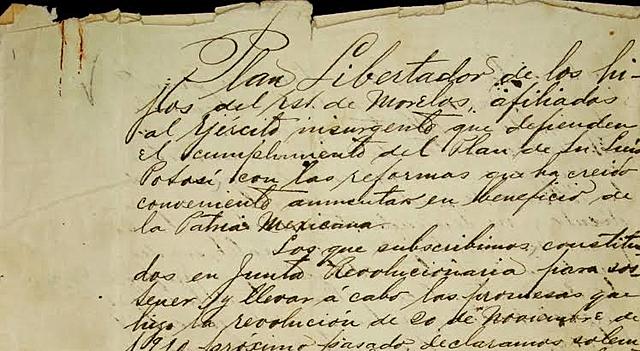 Plan Libertador de los hi-
jos del Est. de Morelos, afiliados
al Ejército insurgente que defienden
el cumplimiento del Plan de Sn. Luis
Potosí, con las reformas que ha creido
conveniente aumentar en beneficio de
la Patria Mexicana.
Los que subscribimos, constitui-
dos en Junta Revolucionaria para sos-
tener y llevar á cabo las promesas que
hizo la revolución de 20 de Noviembre de
1910 próximo pasado, declaramos solem